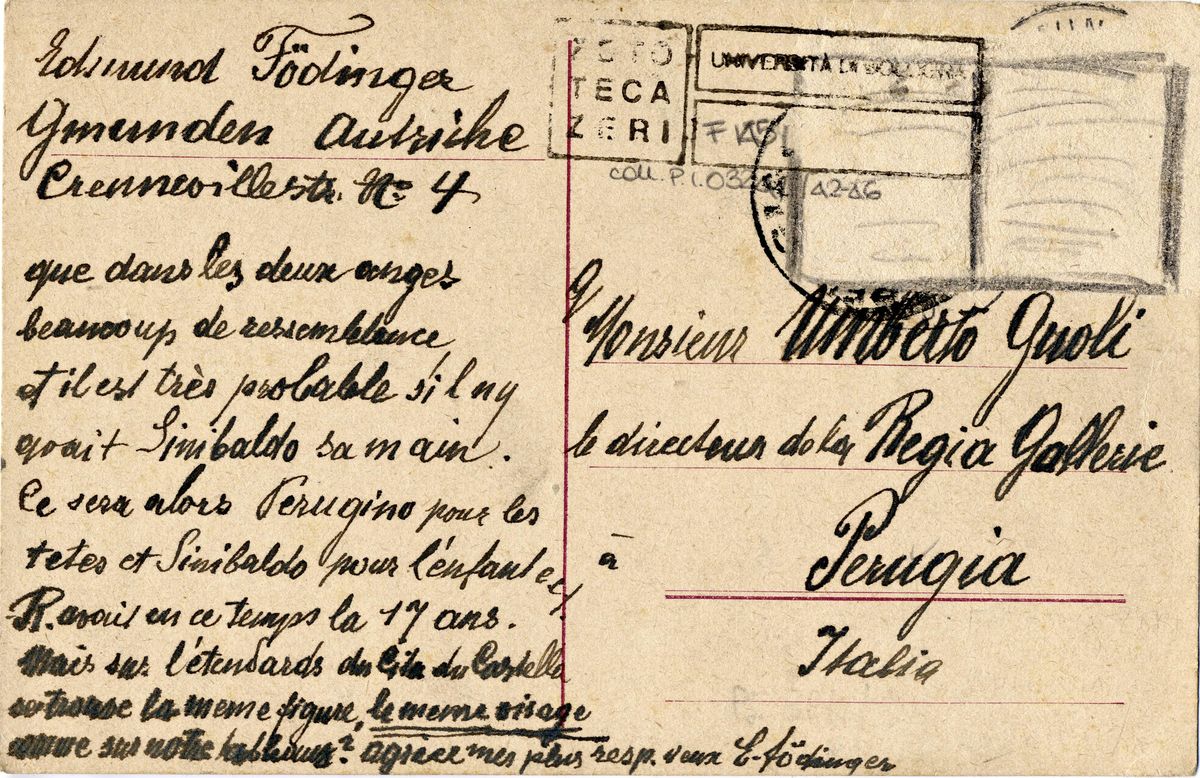 Edmund Födinger
Gmunden Autriche
Crennevillestr. No 4
que dans les deux anges
beaucoup de ressemblance
et il est très probable s'il ny
avait Sinibaldo sa main.
Ce sera alors Perugino pour les
tetes et Sinibaldo pour l'enfant et
R. avait en ce temps la 17 ans.
Mais sur l'étendards du Cita du Castello
se trouve la meme figure, le meme visage
comme sur notre tableau? agréee mes plus resp. veux E. Födinger
FOTO
TECA
ZERI
UNIVERSITÀ DI BOLOGNA
coll. P.I.
Monsieur Umberto Gnoli
le directeur de la Regia Gallerie
à Perugia
Italia